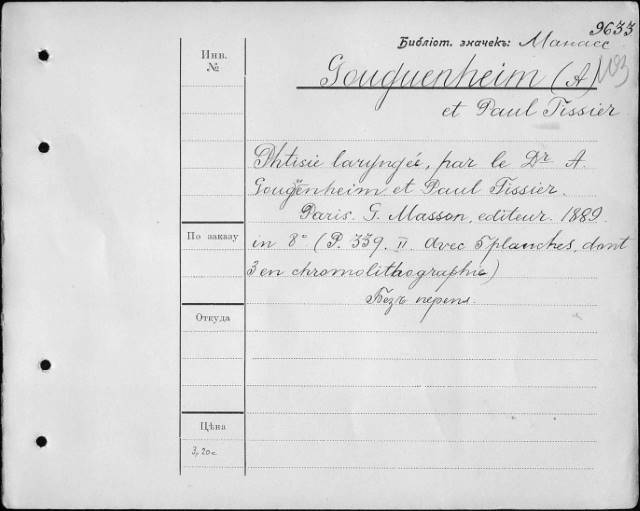 9633
Библіот. значекъ: Манасс
Инв.
№
Gouguenheim (A)
et Paul Tissier
Phtisie laryngée, par le Dr A.
Gouguenheim et Paul Tissier.
Paris. G. Masson, editeur. 1889.
По заказу
in 8° (P. 339. II. Avec 5 planches, dont
3 en chromolithographie)
Безъ перепл.
Откуда
Цѣна